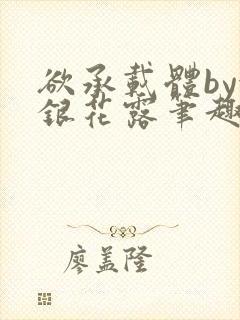 欲承載體by
銀花露筆趣
廖盖隆